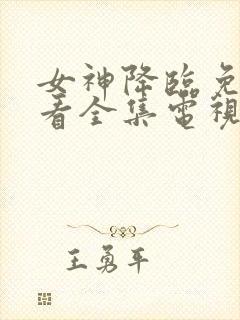 女神降臨免
看全集電視
王勇平